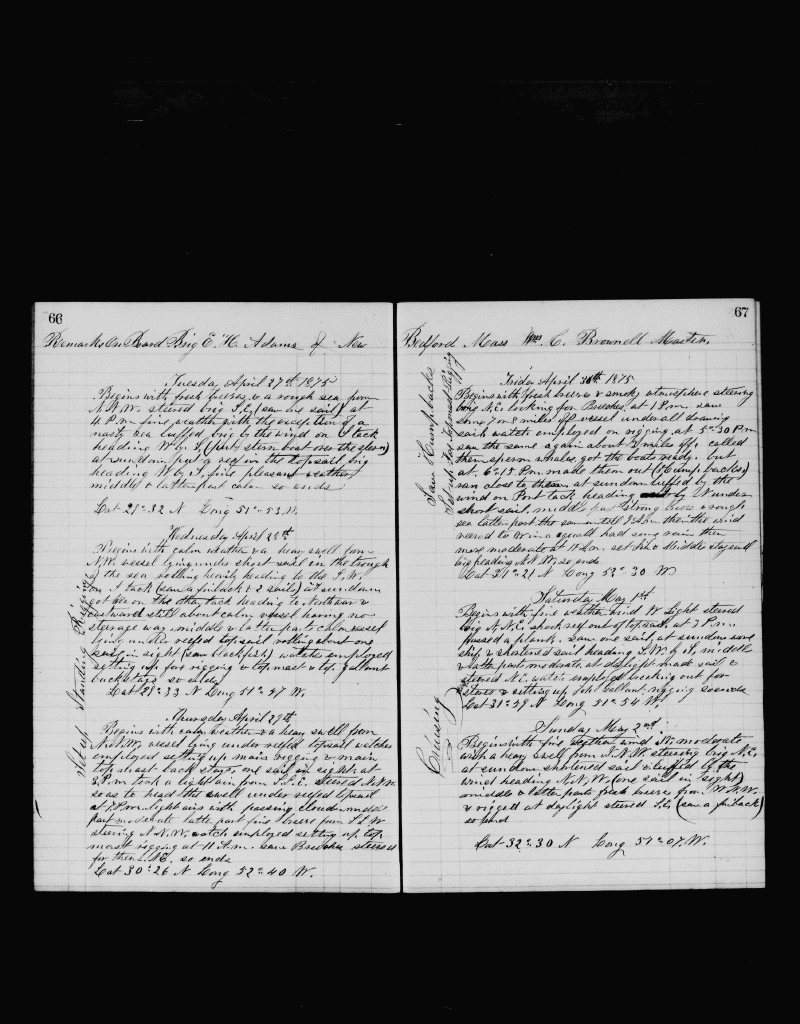 66
Remarks On Board Brig E. H. Adams of New
Tuesday April 27th 1875
Begins with fresh breeze & a rough sea from
N.N.W. steered brig S.E. (saw one sail) at
4 P.m. fine weather with the exception of a
nasty sea luffed brig by the wind on tack
heading W by S. (put stern boat over the stern)
at sundown put a reef in the topsail brig
heading W by S. fine pleasant weather
middle & latter part calm so ends
Lat 29°32 N Long 51°53 W.
Wednesday April 28th
Begins with calm weather & a heavy swell from
N.W. vessel lying under short sail in the trough
of the sea rolling heavily heading to the S.W.
on tack (saw a finback & 2 sails) at sundown
got her on the other tack heading to Northward &
eastward still about calm vessel having no
steerage way. middle & latter parts calm vessel
lying under reefed topsail rolling about one
sail in sight (saw blackfish) watches employed
setting up fore rigging & top mast & top gallant
backstays so ends
Lat 29°33 N Long 51°47 W.
Thursday April 29th
Begins with calm weather & a heavy swell from
N.N.W. vessel lying under reefed topsail watches
employed setting up main rigging & main
top mast back stays one sail in sight. at
3 P.m. took a light air from S.S.E. steered N.N.W.
so as to head the swell under reefed topsail
at 7 P.m. light airs with passing clouds middle
part moderate latter part fine breeze from S.S.W.
steering N.N.W. watch employed setting up top
mast rigging at 11 A.m. saw Breaches steered
for them NE. so ends
Lat 30°26 N Long 52°40 W.
Set up Standing Rigging
67
Bedford Mass Wm C. Brownell Master.
Friday April 30th 1875
Begins with fresh breeze & smoky atmosphere steering
brig N.E. looking for Breaches. at 1 P.m. saw
some 7 or 8 miles off vessel under all drawing
sail watch employed on rigging. at 5°30 P.m
saw the same again about 2 miles off, called
them sperm whales, got the boats ready. but
at 6°15 P.m. made them out (Humpbacks)
ran close to them at sundown luffed by the
wind on Port tack heading by N under
short sail. middle part strong breeze & rough
sea latter part the same until 7 A.m. then the wind
veered to W in a squall had some rain then
more moderate at 11 A.m. set jib & Middle staysail
brig heading N.N.W. so ends
Lat 31°21 N Long 52°30 W.
Saturday May 1st
Begins with fine weather wind W light steered
brig N.N.E. shook reef out of topsail, at 3 P.m.
passed a plank. saw one sail, at sundown wore
ship & shortened sail heading S.W. by S. middle
& latter parts moderate, at daylight made sail &
steered N.E. watch employed breaking out for
stores & setting up top gallant rigging so ends
Lat 31°59 N Long 51°54 W.
Sunday May 2nd
Begins with fine weather wind N. moderate
with a heavy swell from N.N.W. steering brig N.E.
at sundown shortened sail & luffed by the
wind heading N.N.W. (one sail in sight)
middle & latter parts fresh breeze from W.N.W.
& rugged at daylight steered S.E. (saw a finback)
so ends
Lat 32°30 N Long 51°07 W.
Saw Humpbacks
Set up Fore Topmast Rigging
Cruising